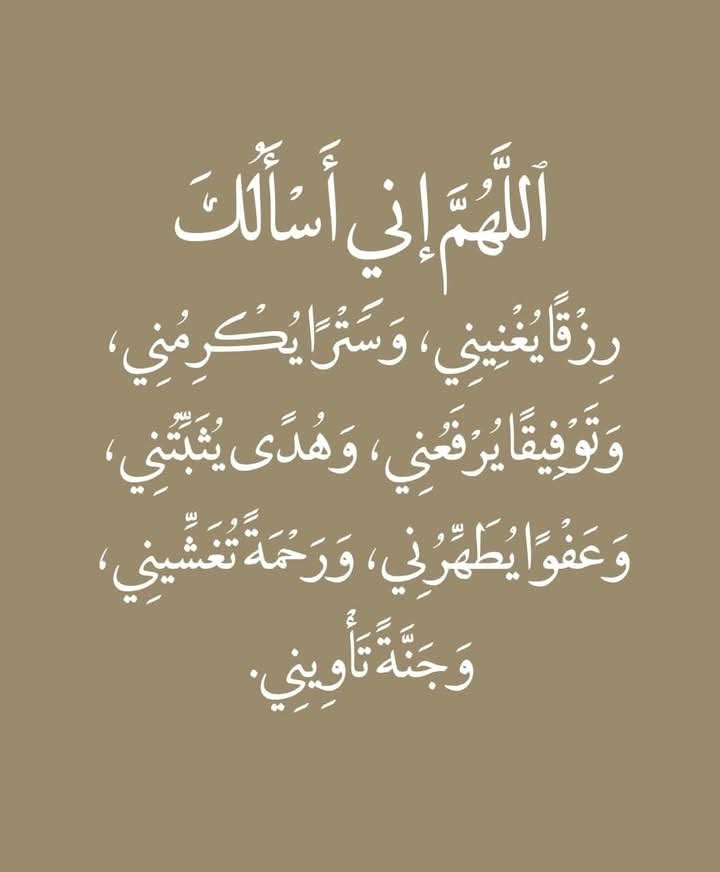 ٱللَّهُمَّ إِني أَسْأَلُكَ
رِزْقًا يُغْنِينِي، وَسَتْرًا يُكْرِمُنِي،
وَتَوْفِيقًا يُرْفَعُنِي، وَهُدًى يُثَبِّتُنِي،
وَعَفْوًا يُطَهِّرُنِي، وَرَحْمَةً تُغَشِّينِي،
وَجَنَّةً تَأْوِينِي.